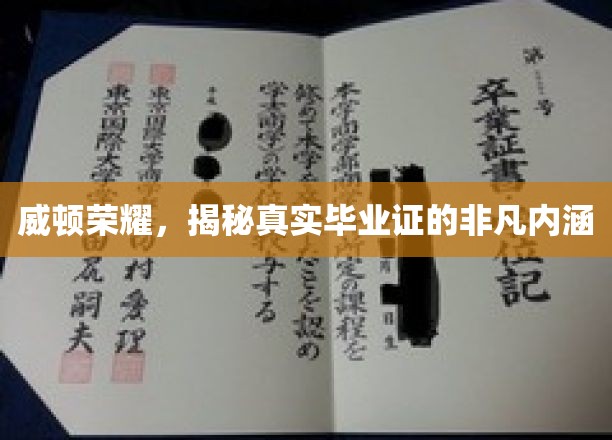 威顿荣耀，揭秘真实毕业证的非凡内涵
第 号
卒業証書 位記
月 日生
本学商学部商学 所定の課程を
修めて本学を ことを認め
学士(商学)の学 与する
平成
東京国際大学商学 村愛理
東京国際大学 尻嗣夫